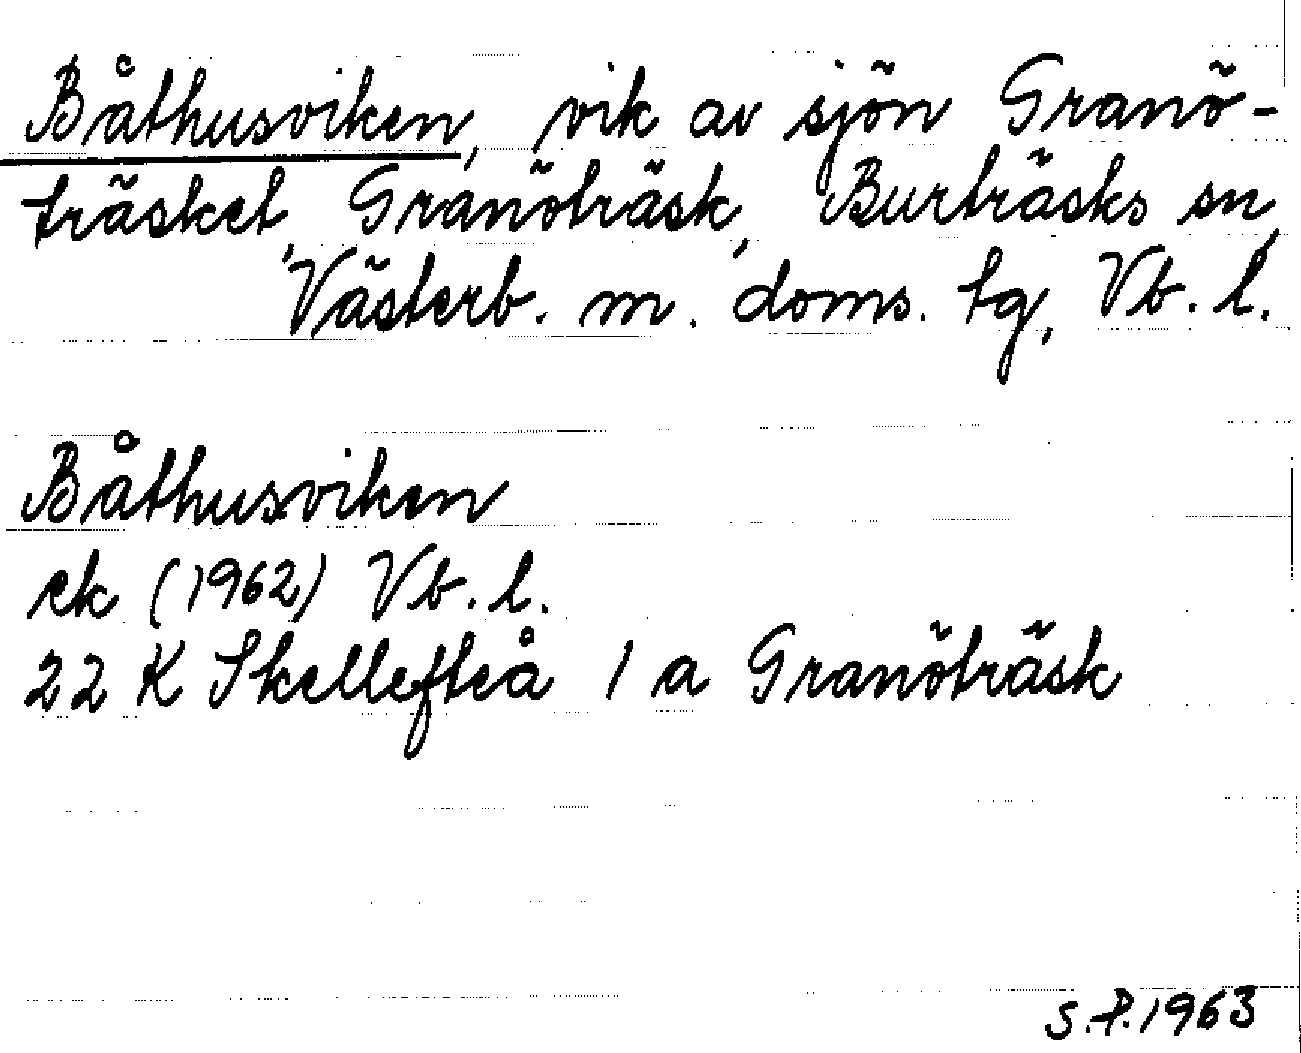 Båthusviken, vik av sjön Granö-
träsket, Granöträsk, Burträsks sn,
Västerb. m. doms. tg, Vb. l.
Båthusviken
ek (1962) Vb. l.
22 K Skellefteå 1 a Granöträsk
S.P. 1963